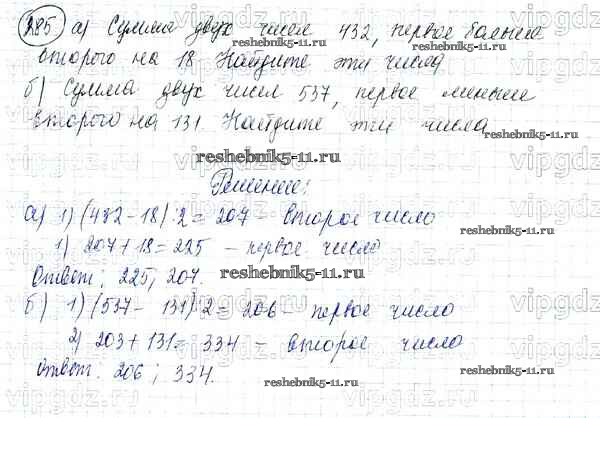 285 а) Сумма двух чисел 432, первое больше
второго на 18. Найдите эти числа
б) Сумма двух чисел 537, первое меньше
второго на 131. Найдите эти числа
Решение:
а) 1) (432-18):2= 207 - второе число
1) 207+18=225 - первое число
Ответ: 225, 207.
б) 1) (537- 131):2= 206 - первое число
2) 203+131= 334 - второе число
Ответ: 206; 334.
reshebnik5-11.ru
reshebnik5-11.ru
reshebnik5-11.ru
reshebnik5-11.ru
reshebnik5-11.ru
reshebnik5-11.ru
reshebnik5-11.ru